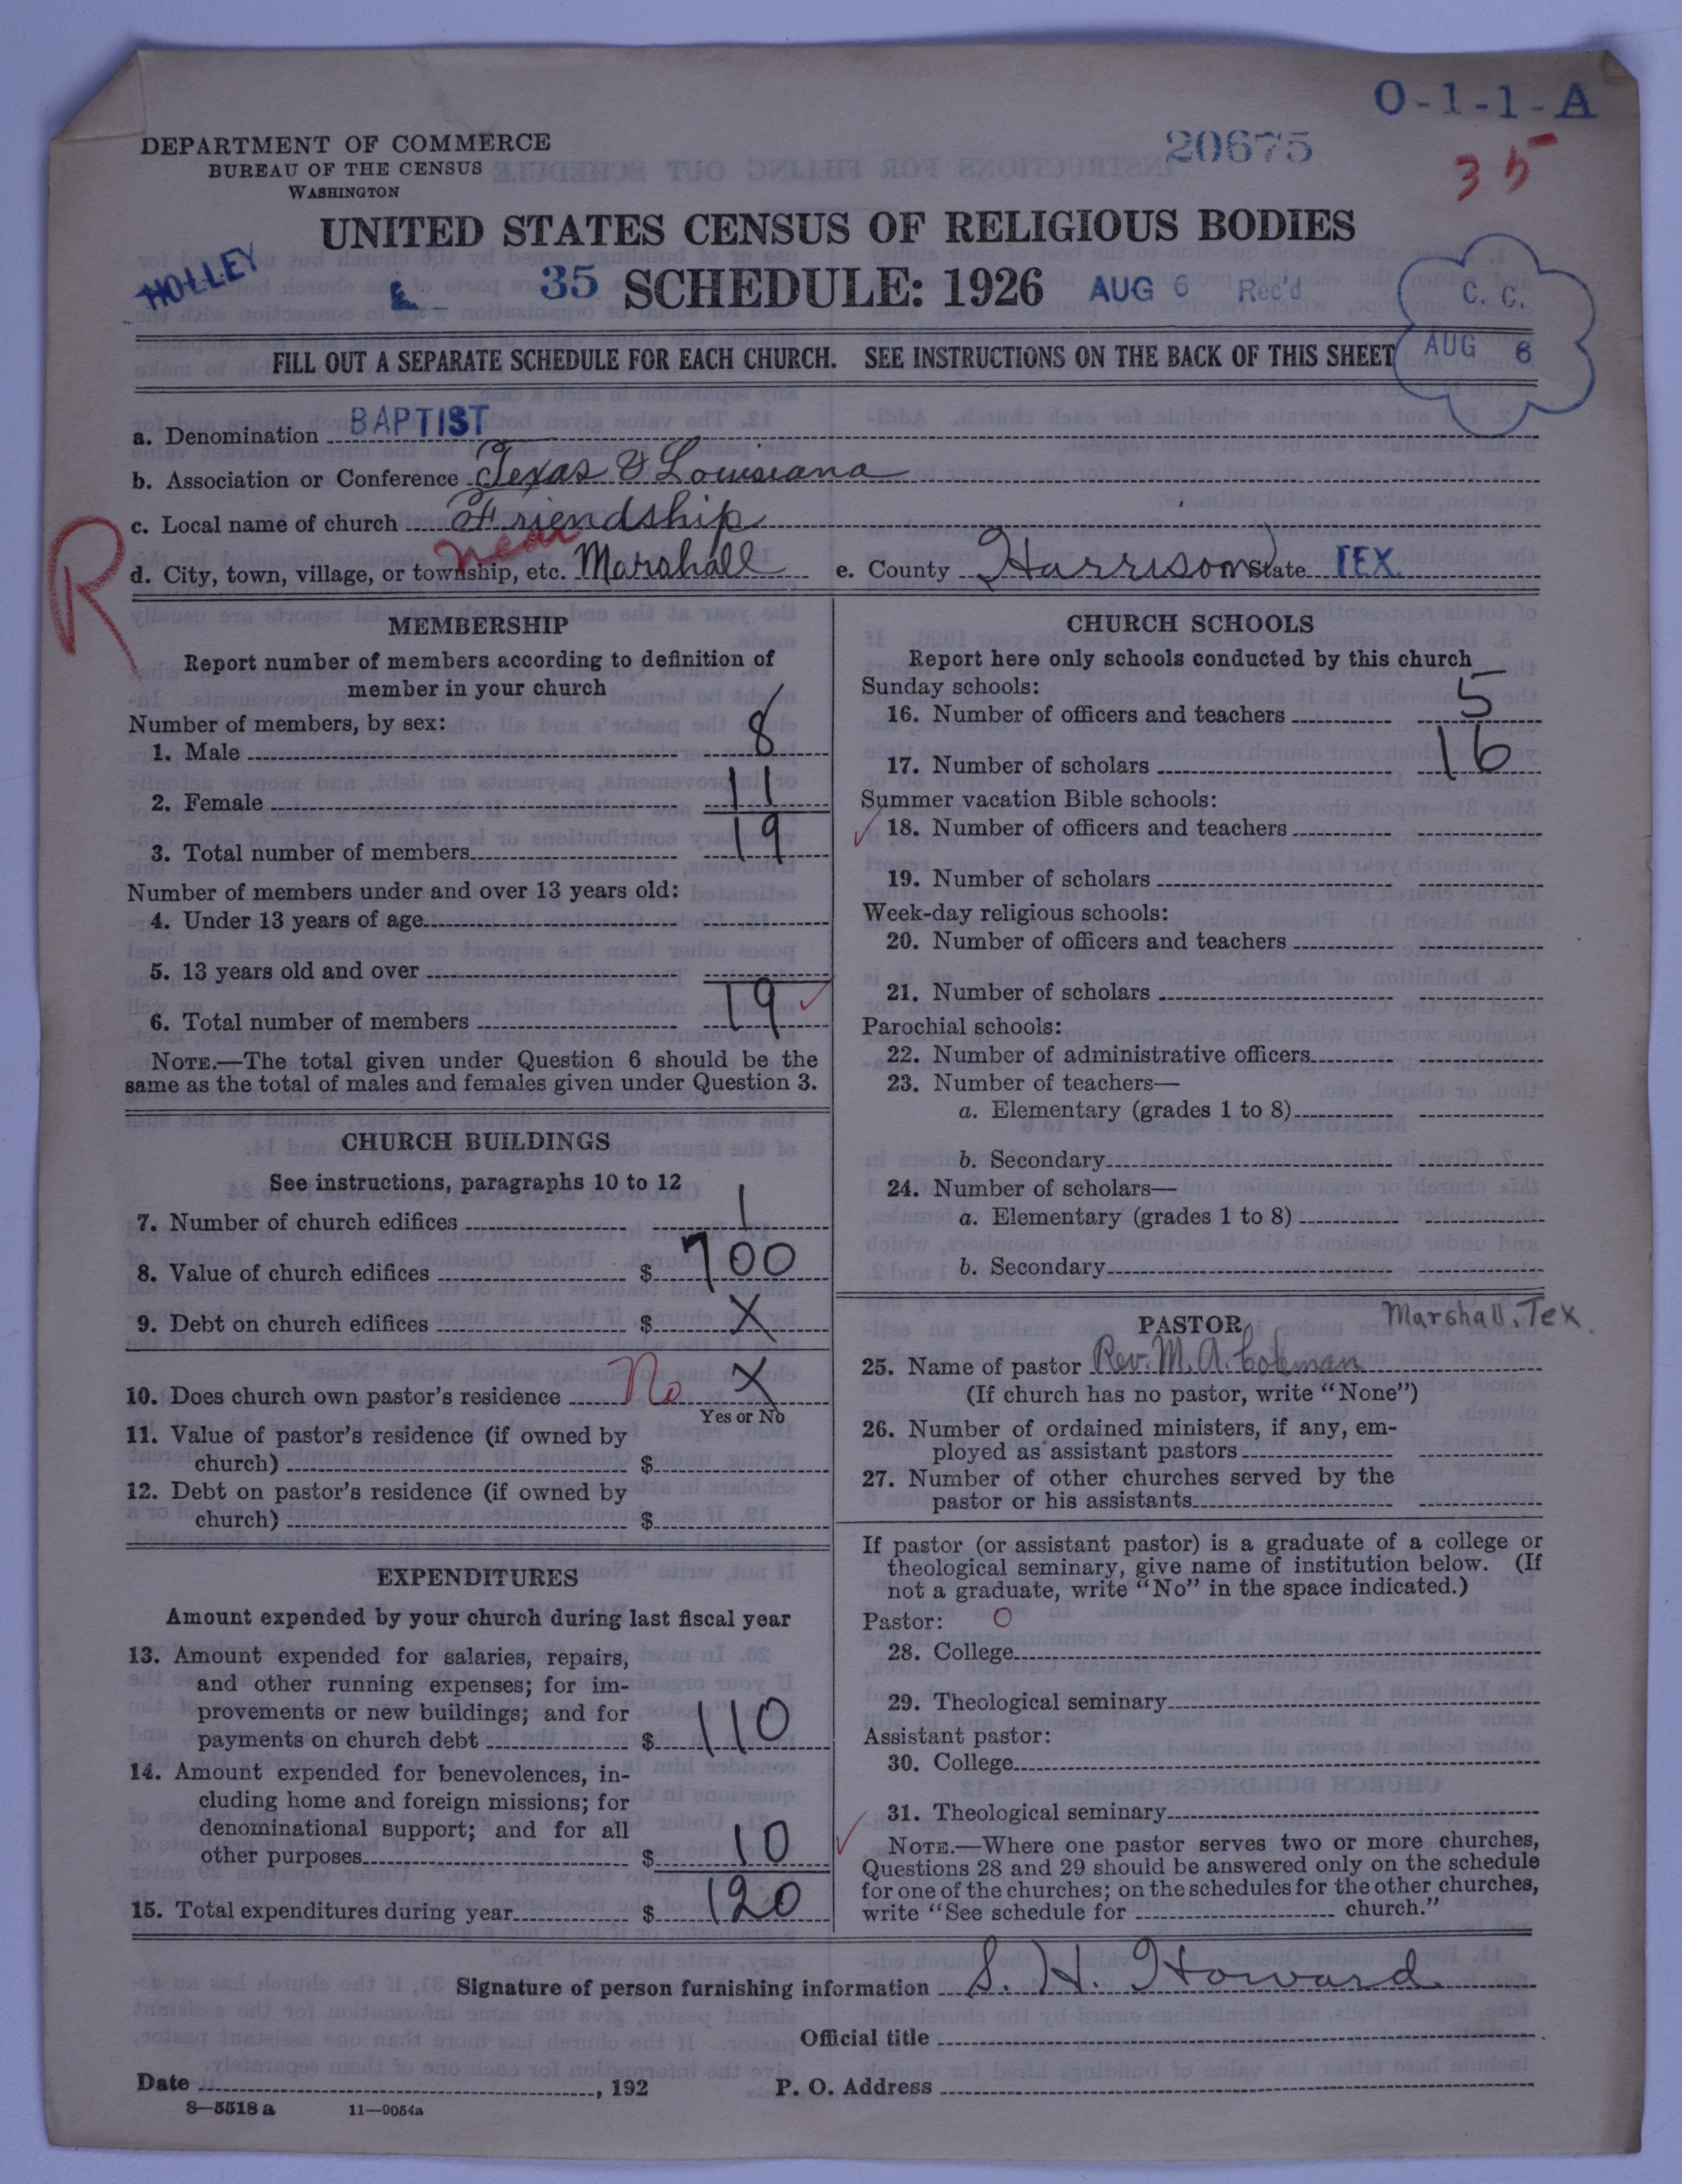 O-1-1-A
DEPARTMENT OF COMMERCE
BUREAU OF THE CENSUS
WASHINGTON
20675
35
UNITED STATES CENSUS OF RELIGIOUS BODIES
HOLLEY
E
35 SCHEDULE: 1926 AUG 6 Rec'd
C. C.
AUG 6
FILL OUT A SEPARATE SCHEDULE FOR EACH CHURCH. SEE INSTRUCTIONS ON THE BACK OF THIS SHEET
a. Denomination BAPTIST
b. Association or Conference Texas & Louisiana
c. Local name of church Friendship
R
near
d. City, town, village, or township, etc. Marshall e. County Harrison State TEX.
MEMBERSHIP
Report number of members according to definition of
member in your church
Number of members, by sex:
1. Male 8
2. Female 11
3. Total number of members 19
Number of members under and over 13 years old:
4. Under 13 years of age
5. 13 years old and over
6. Total number of members 19
NOTE.—The total given under Question 6 should be the
same as the total of males and females given under Question 3.
CHURCH BUILDINGS
See instructions, paragraphs 10 to 12
7. Number of church edifices 1
8. Value of church edifices $ 700
9. Debt on church edifices $ X
10. Does church own pastor's residence No X
Yes or No
11. Value of pastor's residence (if owned by
church) $
12. Debt on pastor's residence (if owned by
church) $
EXPENDITURES
Amount expended by your church during last fiscal year
13. Amount expended for salaries, repairs,
and other running expenses; for im-
provements or new buildings; and for
payments on church debt $ 110
14. Amount expended for benevolences, in-
cluding home and foreign missions; for
denominational support; and for all
other purposes $ 10
15. Total expenditures during year $ 120
CHURCH SCHOOLS
Report here only schools conducted by this church
Sunday schools:
16. Number of officers and teachers 5
17. Number of scholars 16
Summer vacation Bible schools:
18. Number of officers and teachers
19. Number of scholars
Week-day religious schools:
20. Number of officers and teachers
21. Number of scholars
Parochial schools:
22. Number of administrative officers
23. Number of teachers—
a. Elementary (grades 1 to 8)
b. Secondary
24. Number of scholars—
a. Elementary (grades 1 to 8)
b. Secondary
PASTOR Marshall, Tex
25. Name of pastor Rev. M. A. Coleman
(If church has no pastor, write "None")
26. Number of ordained ministers, if any, em-
ployed as assistant pastors
27. Number of other churches served by the
pastor or his assistants
If pastor (or assistant pastor) is a graduate of a college or
theological seminary, give name of institution below. (If
not a graduate, write "No" in the space indicated.)
Pastor: O
28. College
29. Theological seminary
Assistant pastor:
30. College
31. Theological seminary
NOTE.—Where one pastor serves two or more churches,
Questions 28 and 29 should be answered only on the schedule
for one of the churches; on the schedules for the other churches,
write "See schedule for church."
Signature of person furnishing information S. H. Howard
Official title
Date , 192 P. O. Address
8—5518 a 11—9054a